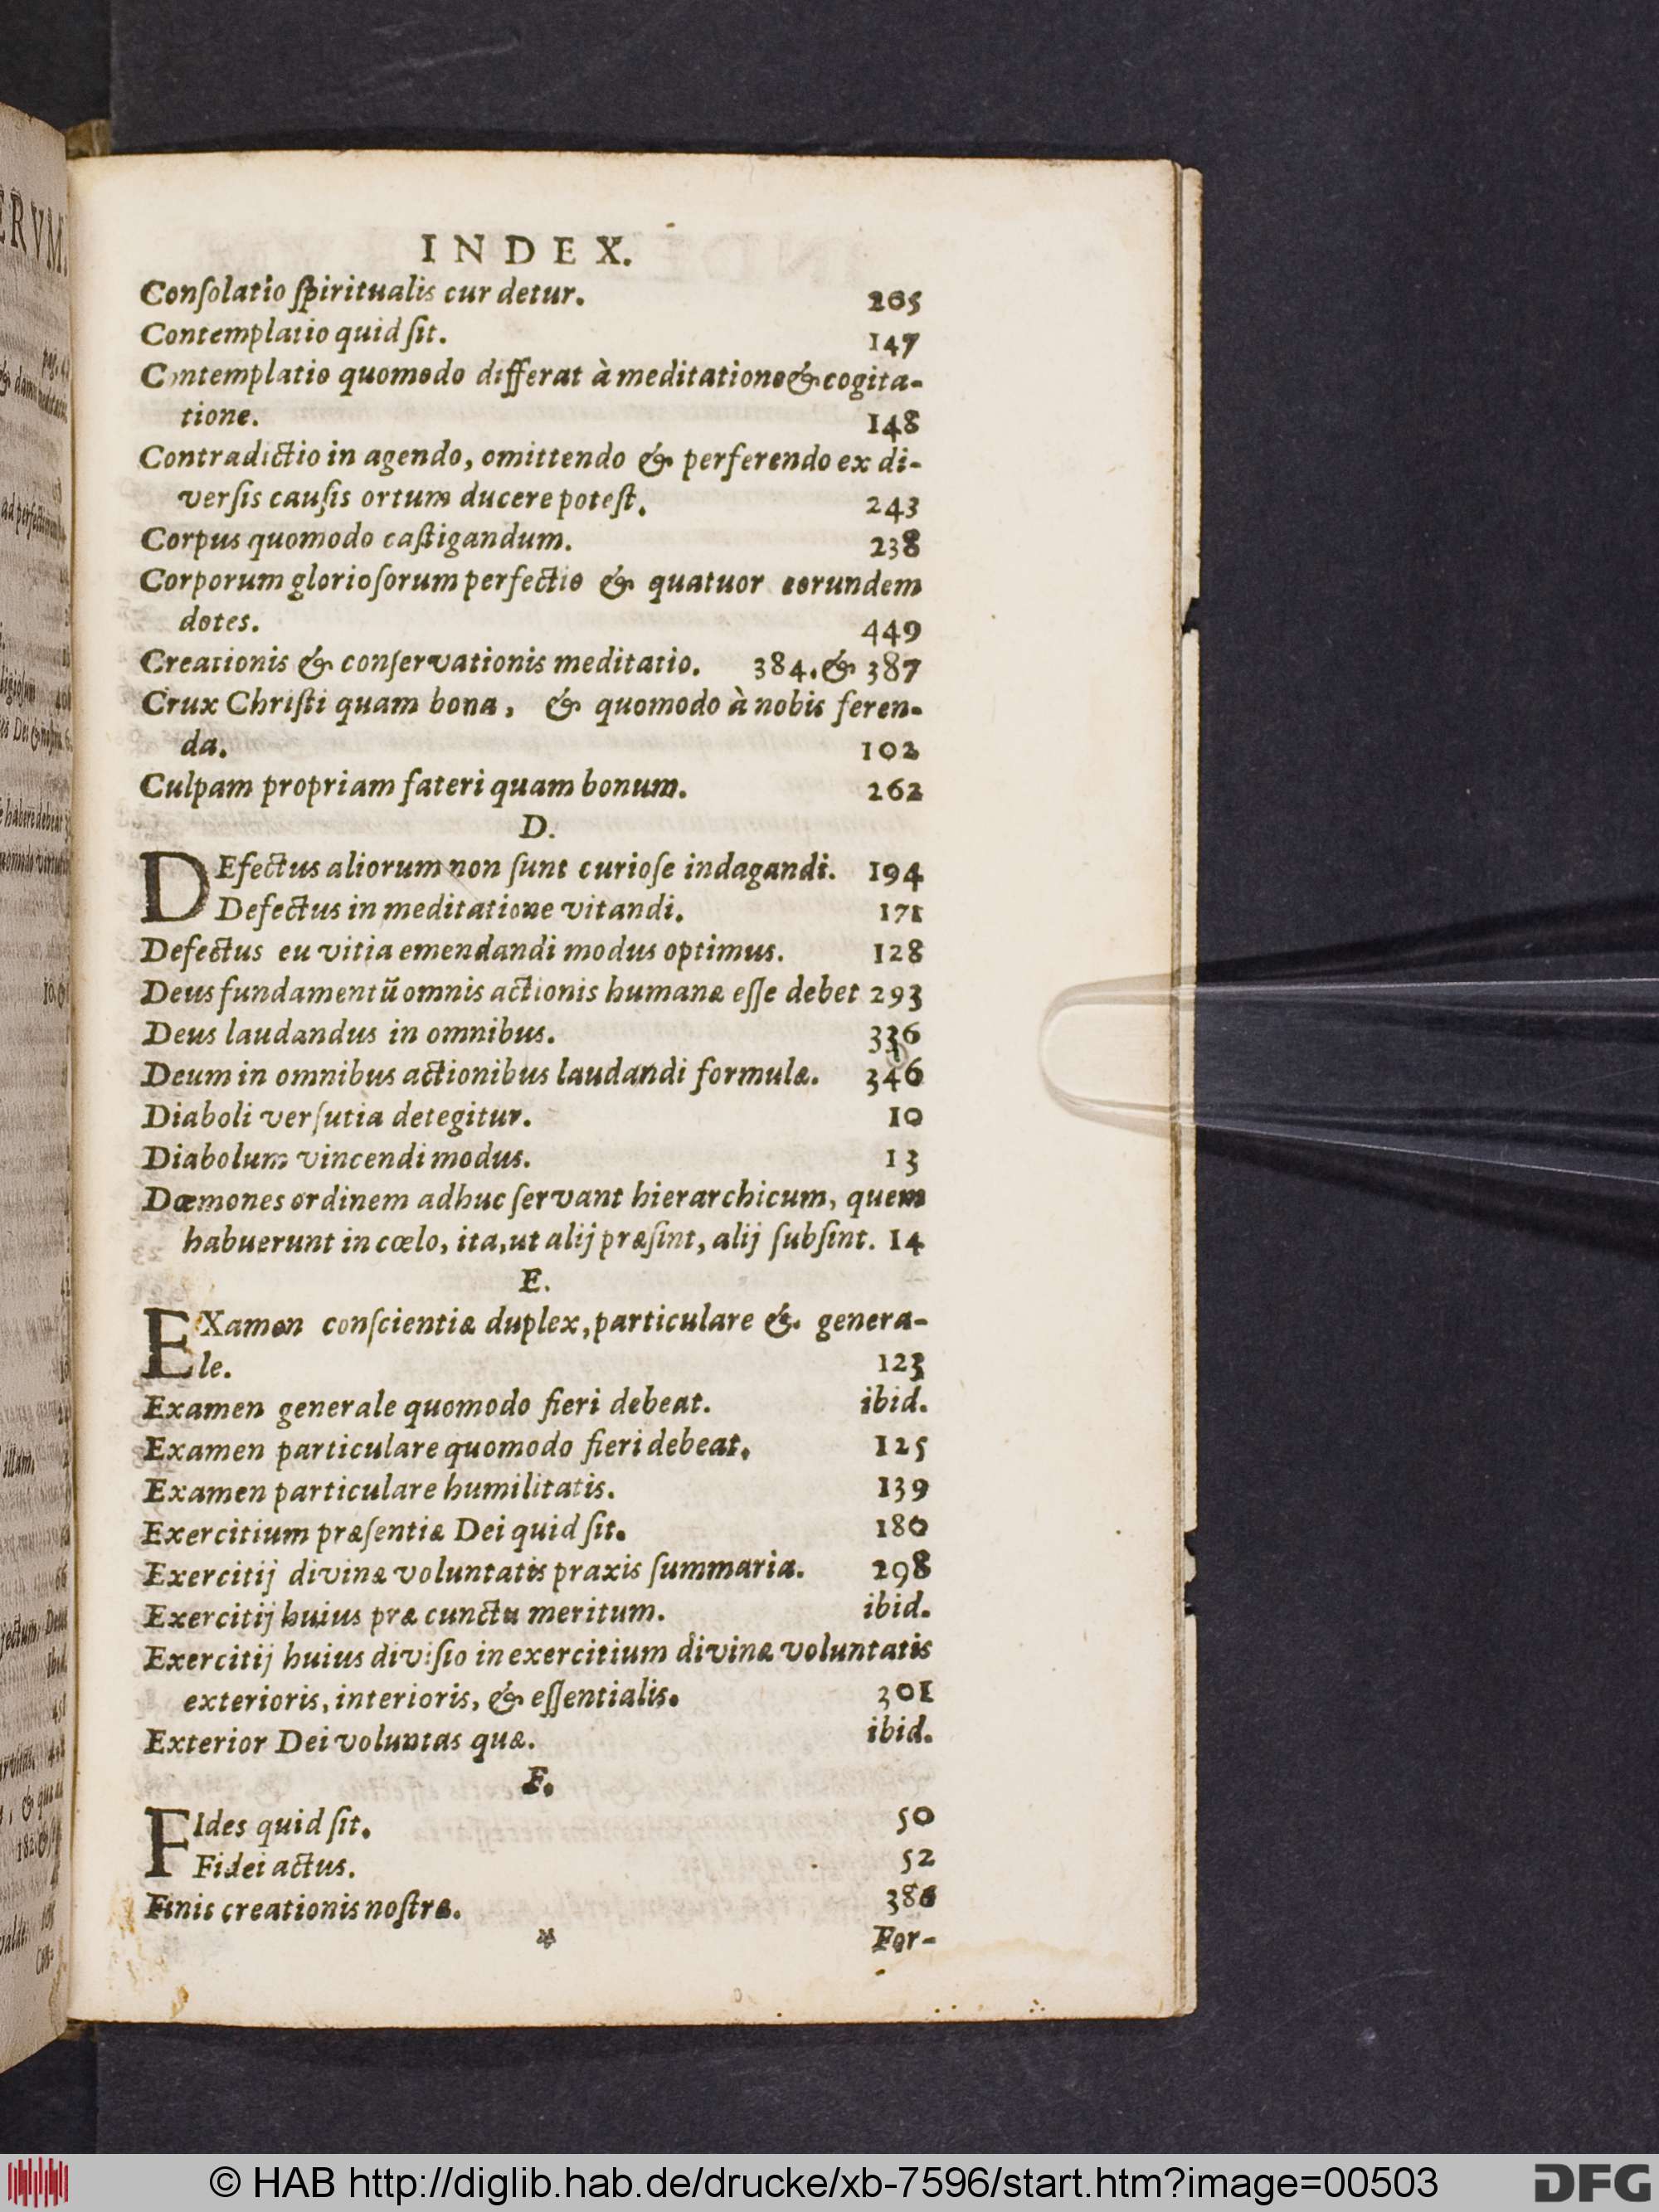 INDEX.
Conſolatio ſpiritualis cur detur. 265
Contemplatio quid ſit. 147
Contemplatio quomodo differat à meditatione & cogita-
tione. 148
Contradictio in agendo, omittendo & perferendo ex di-
verſis cauſis ortum ducere poteſt. 243
Corpus quomodo caſtigandum. 238
Corporum glorioſorum perfectio & quatuor eorundem
dotes. 449
Creationis & conſervationis meditatio. 384. & 387
Crux Chriſti quam bona, & quomodo à nobis feren-
da. 102
Culpam propriam fateri quam bonum. 262
D.
DEfectus aliorum non ſunt curioſe indagandi. 194
Defectus in meditatione vitandi. 171
Defectus eu vitia emendandi modus optimus. 128
Deus fundamentũ omnis actionis humanæ eſſe debet 293
Deus laudandus in omnibus. 336
Deum in omnibus actionibus laudandi formulæ. 346
Diaboli verſutia detegitur. 10
Diabolum vincendi modus. 13
Dæmones ordinem adhuc ſervant hierarchicum, quem
habuerunt in cœlo, ita, ut alij præſint, alij ſubſint. 14
E.
EXamen conſcientiæ duplex, particulare &. genera-
le. 123
Examen generale quomodo fieri debeat. ibid.
Examen particulare quomodo fieri debeat. 125
Examen particulare humilitatis. 139
Exercitium præſentiæ Dei quid ſit. 180
Exercitij divinæ voluntatis praxis ſummaria. 298
Exercitij huius præ cunctis meritum. ibid.
Exercitij huius diviſio in exercitium divinæ voluntatis
exterioris, interioris, & eſſentialis. 301
Exterior Dei voluntas quæ. ibid.
F.
FIdes quid ſit. 50
Fidei actus. 52
Finis creationis noſtræ. 386
* For-
© HAB http://diglib.hab.de/drucke/xb-7596/start.htm?image=00503
DFG